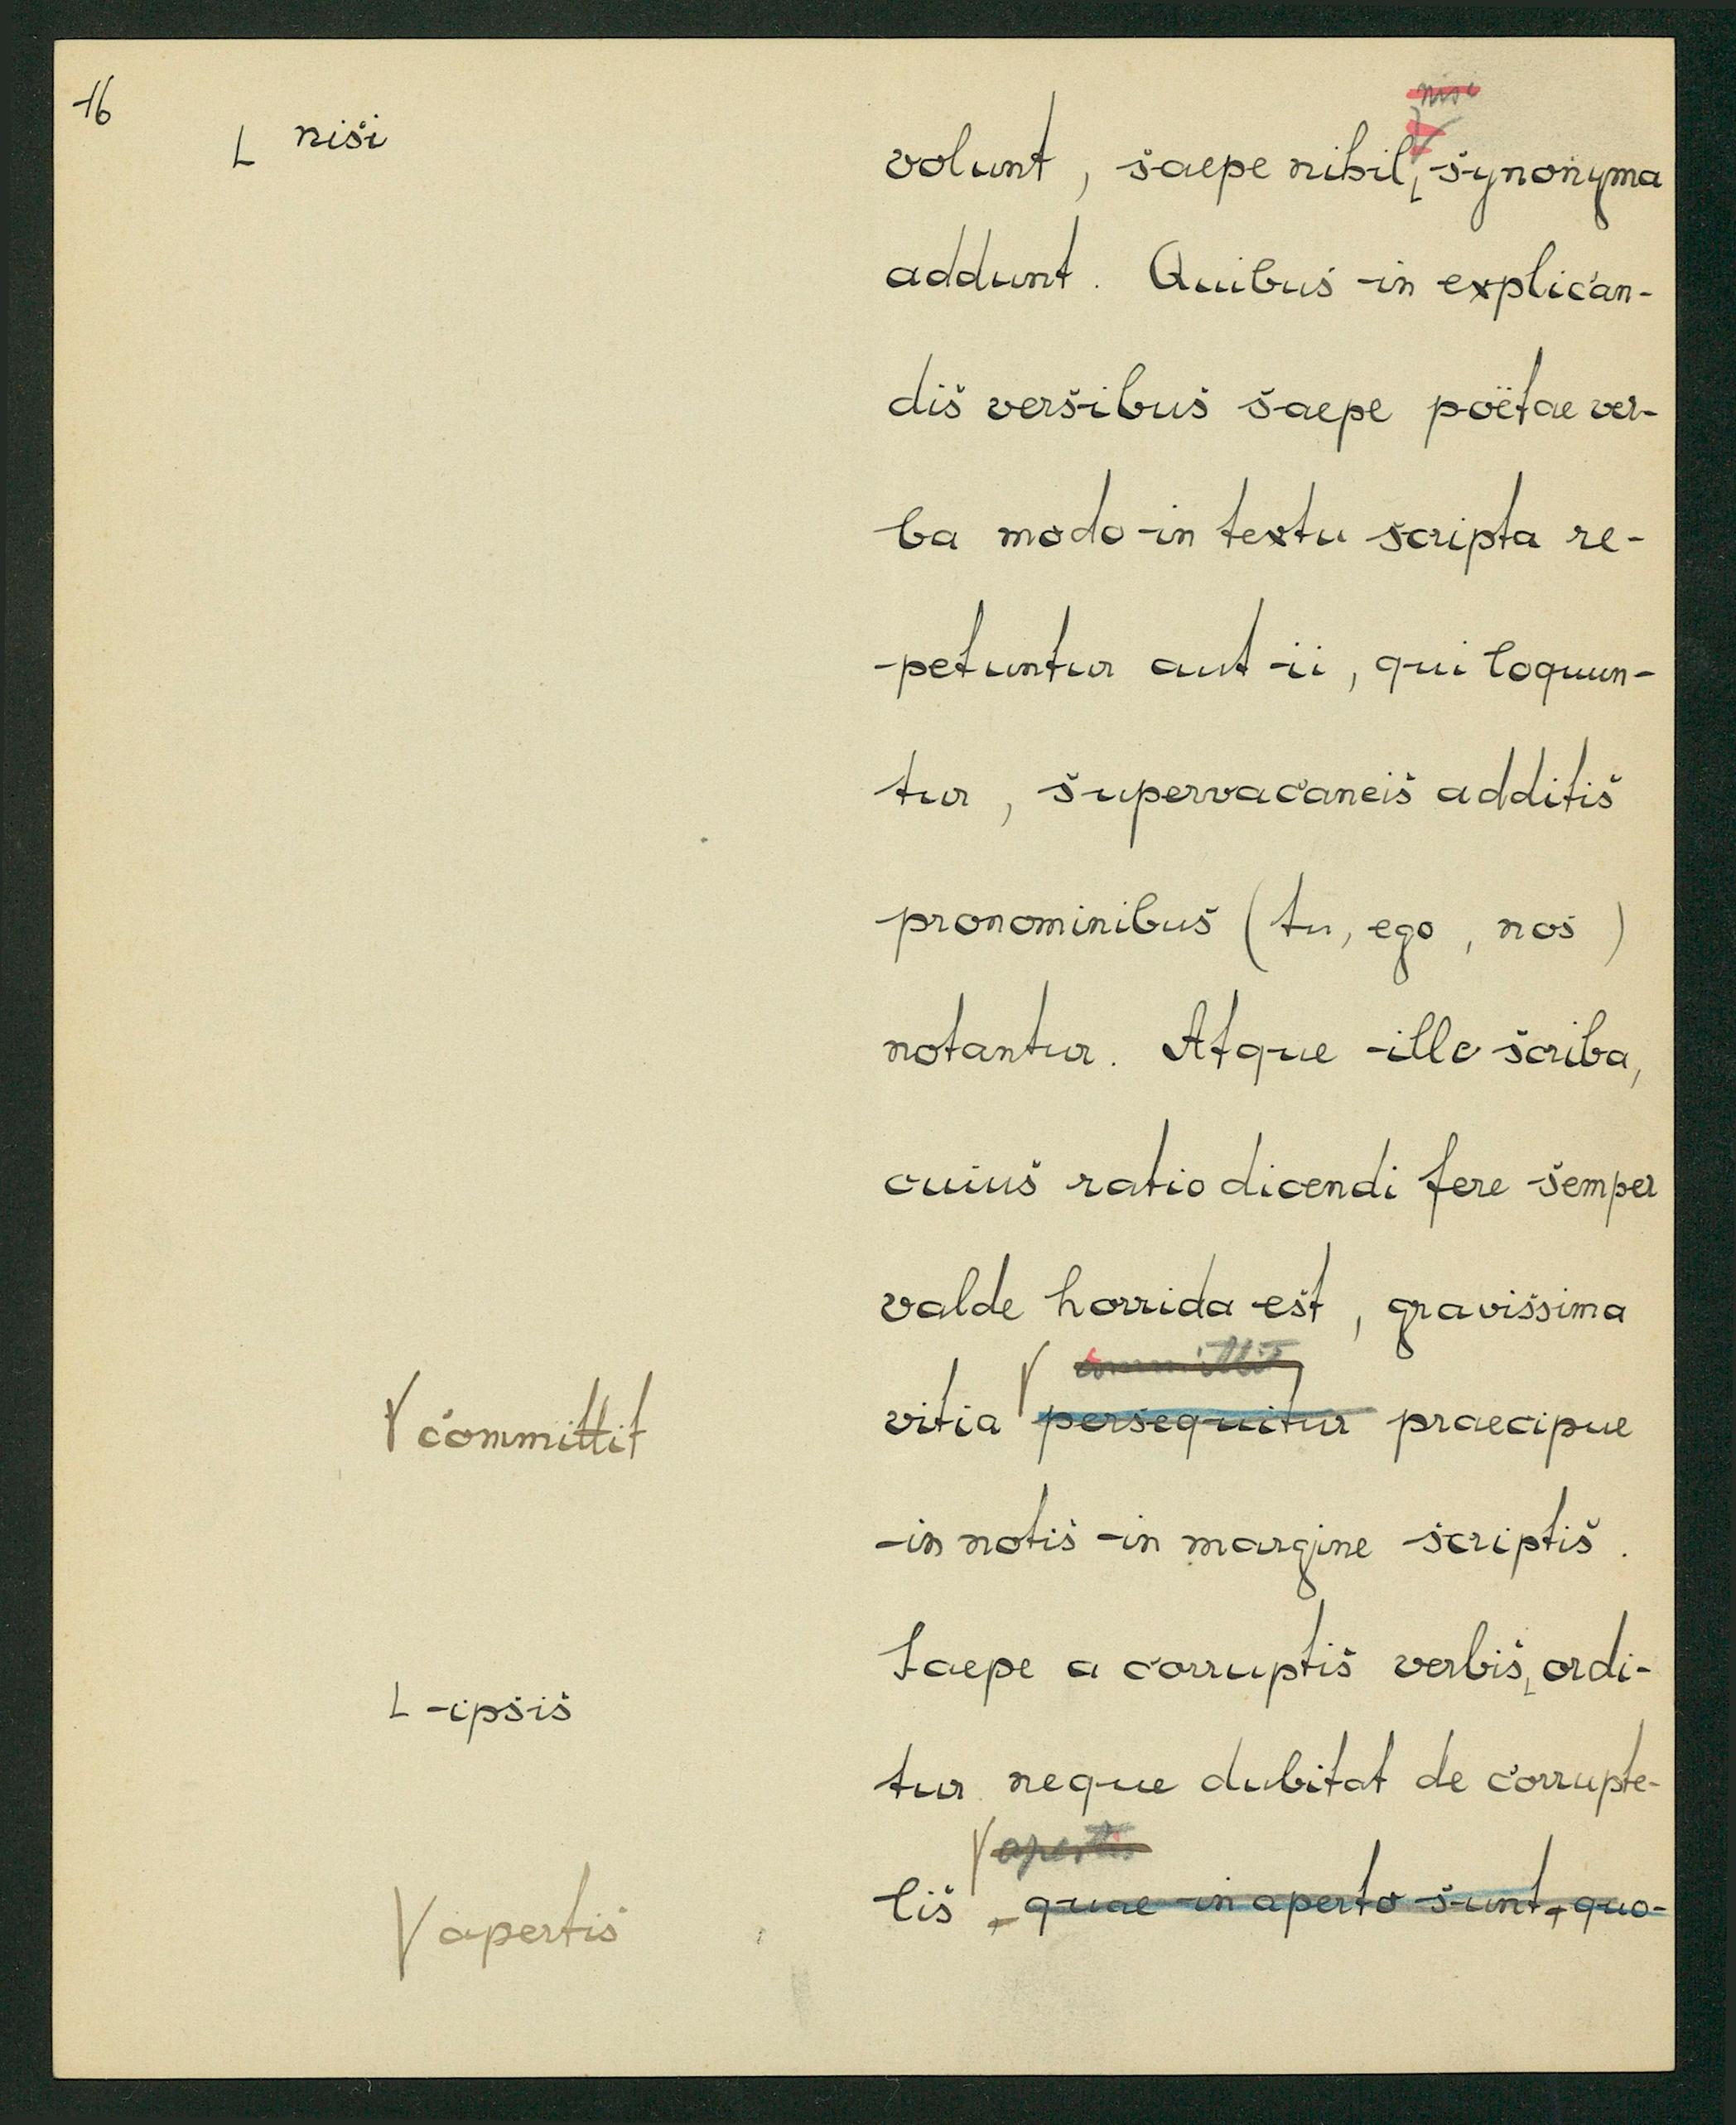 16
L nisi
nisi
volunt, saepe nihil, synonyma
addunt. Quibus in explican-
dis versibus saepe poëtae ver-
ba modo in textu scripta re-
petuntur aut ii, qui loquun-
tur, supervacaneis additis
pronominibus (tu, ego, nos)
notantur. Atque ille scriba,
cuius ratio dicendi fere semper
valde horrida est, gravissima
committit
committit
vitia persequitur praecipue
in notis in margine scriptis.
Saepe a corruptis verbis ordi-
L ipsis
tur neque dubitat de corrupte-
apertis
lis, quae in aperto sunt, quo-
apertis